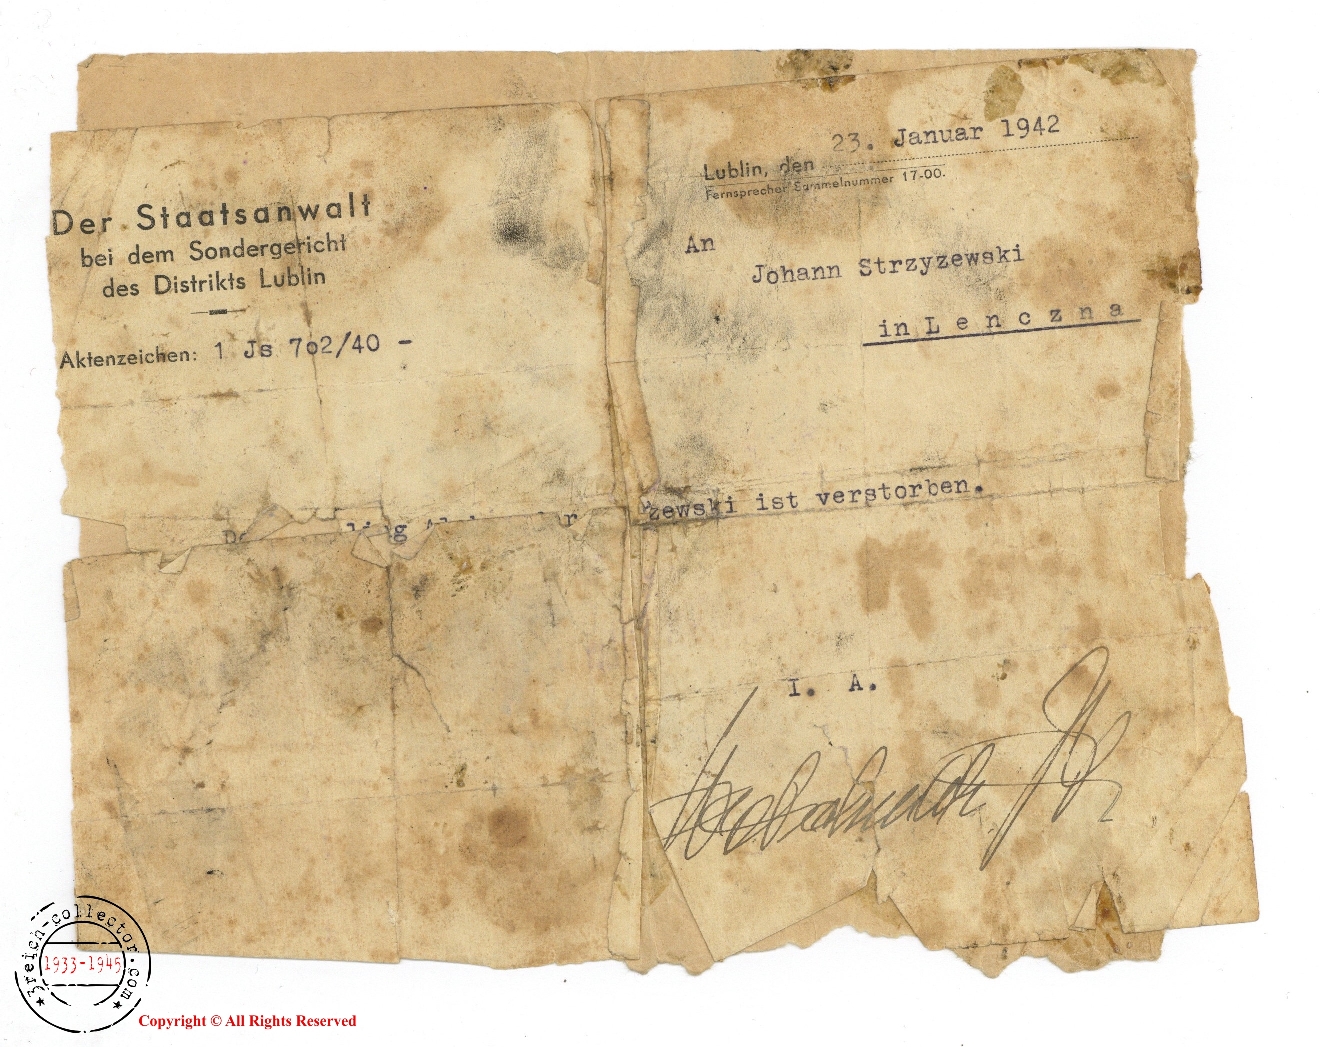 23. Januar 1942
Lublin, den
Fernsprecher Sammelnummer 17-00.
Der Staatsanwalt
bei dem Sondergericht
des Distrikts Lublin
Aktenzeichen: 1 Js 7o2/40 -
An
Johann Strzyzewski
in L e n c z n a
zewski ist verstorben.
I. A.
3reich-collector.com
1933-1945
Copyright © All Rights Reserved